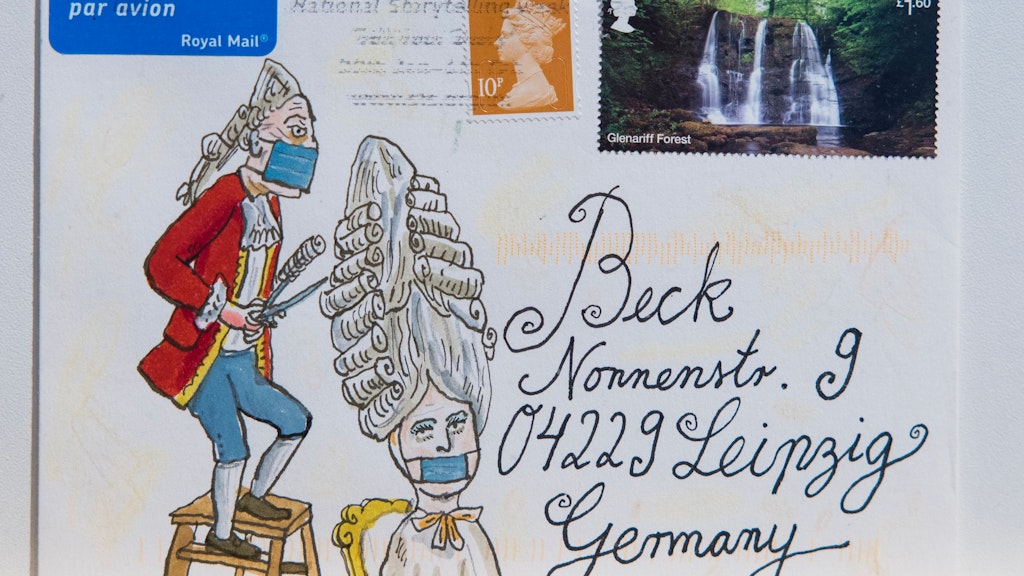 par avion
Royal Mail®
National Storytelling Week
10P
£1.60
Glenariff Forest
Beck
Nonnenstr. 9
04229 Leipzig
Germany